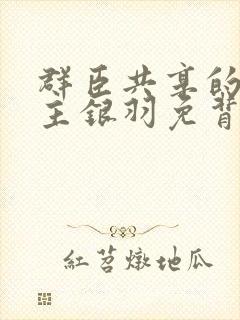 群臣共享的
主銀羽免背
紅苕燉地瓜